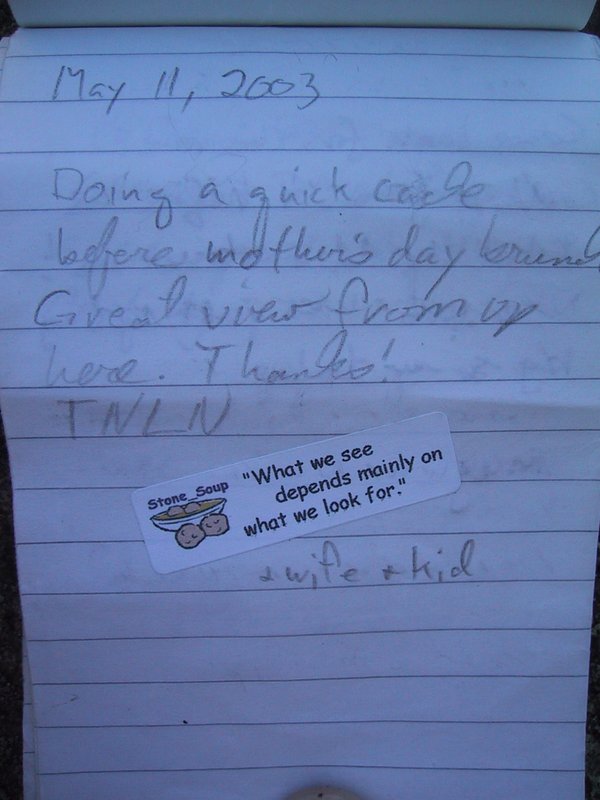 May 11, 2003
Doing a quick cache
before mother's day brunch
Great view from up
here. Thanks!
TNLN
Stone_Soup
"What we see
depends mainly on
what we look for."
+ wife + kid